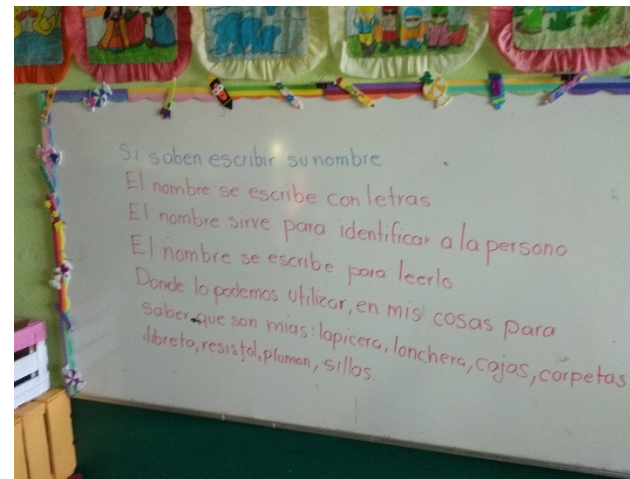 Si saben escribir su nombre
El nombre se escribe con letras
El nombre sirve para identificar a la persona
El nombre se escribe para leerlo
Donde lo podemos utilizar, en mis cosas para
saber que son mias: lapicera, lonchera, cajas, carpetas
libreta, resistol, plumon, sillas.